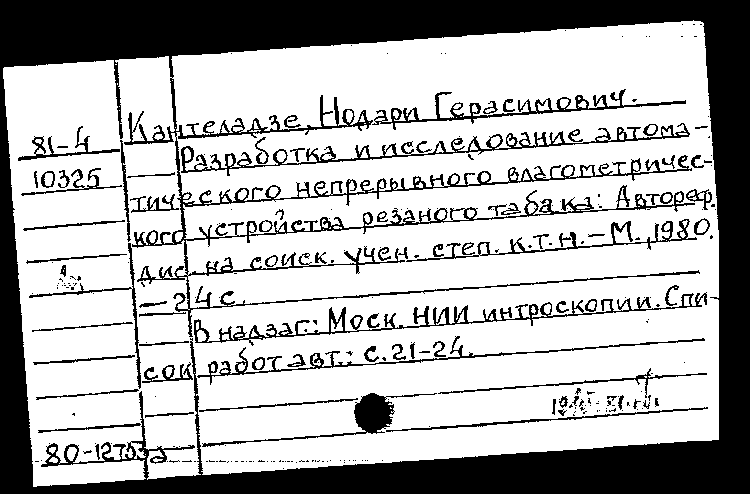 Кантеладзе, Нодари Герасимович.
81-4
10325
Разработка и исследование автома-
тического непрерывного влагометричес-
кого устройства резаного табака: Автореф.
дис. на соиск. учен. степ. к.т.н. - М., 1980.
- 24 с.
В надзаг.: Моск. НИИ интроскопии. Спи-
сок работ авт.: с. 21-24.